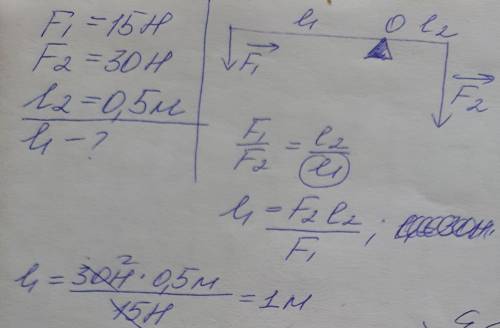 F₁ = 15Н
F₂ = 30Н
l₂ = 0,5м
l₁ - ?
l₁ O l₂
F₁
F₂
F₁/F₂ = l₂/l₁
l₁ = F₂l₂/F₁;
l₁ = 30Н² · 0,5м / 15Н = 1м